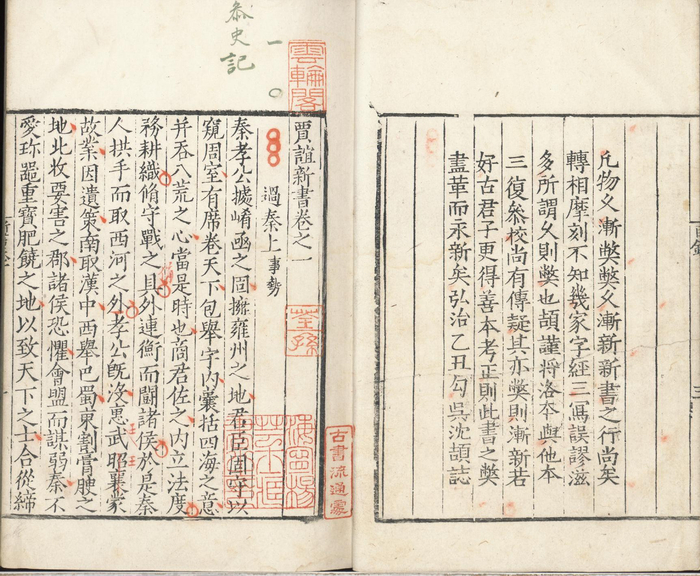 凡物久漸弊弊久漸新新書之行尚矣
轉相摩刻不知幾家字經三寫誤謬滋
多所謂久則弊也頡謹將洛本與他本
三復叅校尚有傳疑其亦弊則漸新若
好古君子更得善本考正則此書之弊
盡革而永新矣弘治乙丑勾吳沈頡誌
叅史記
一
雲輪閣
賈誼新書卷之一
過秦上 事勢
荃孫
古書流通處
秦孝公據崤函之固擁雍州之地君臣固守以
窺周室有席卷天下包舉宇内囊括四海之意
并吞八荒之心當是時也商君佐之内立法度
務耕織脩守戰之具外連衡而鬬諸侯於是秦
人拱手而取西河之外孝公旣沒惠武昭襄蒙
故業因遺策南取漢中西舉巴蜀東割膏腴之
地北收要害之郡諸侯恐懼會盟而謀弱秦不
愛珎噐重寶肥饒之地以致天下之士合從締